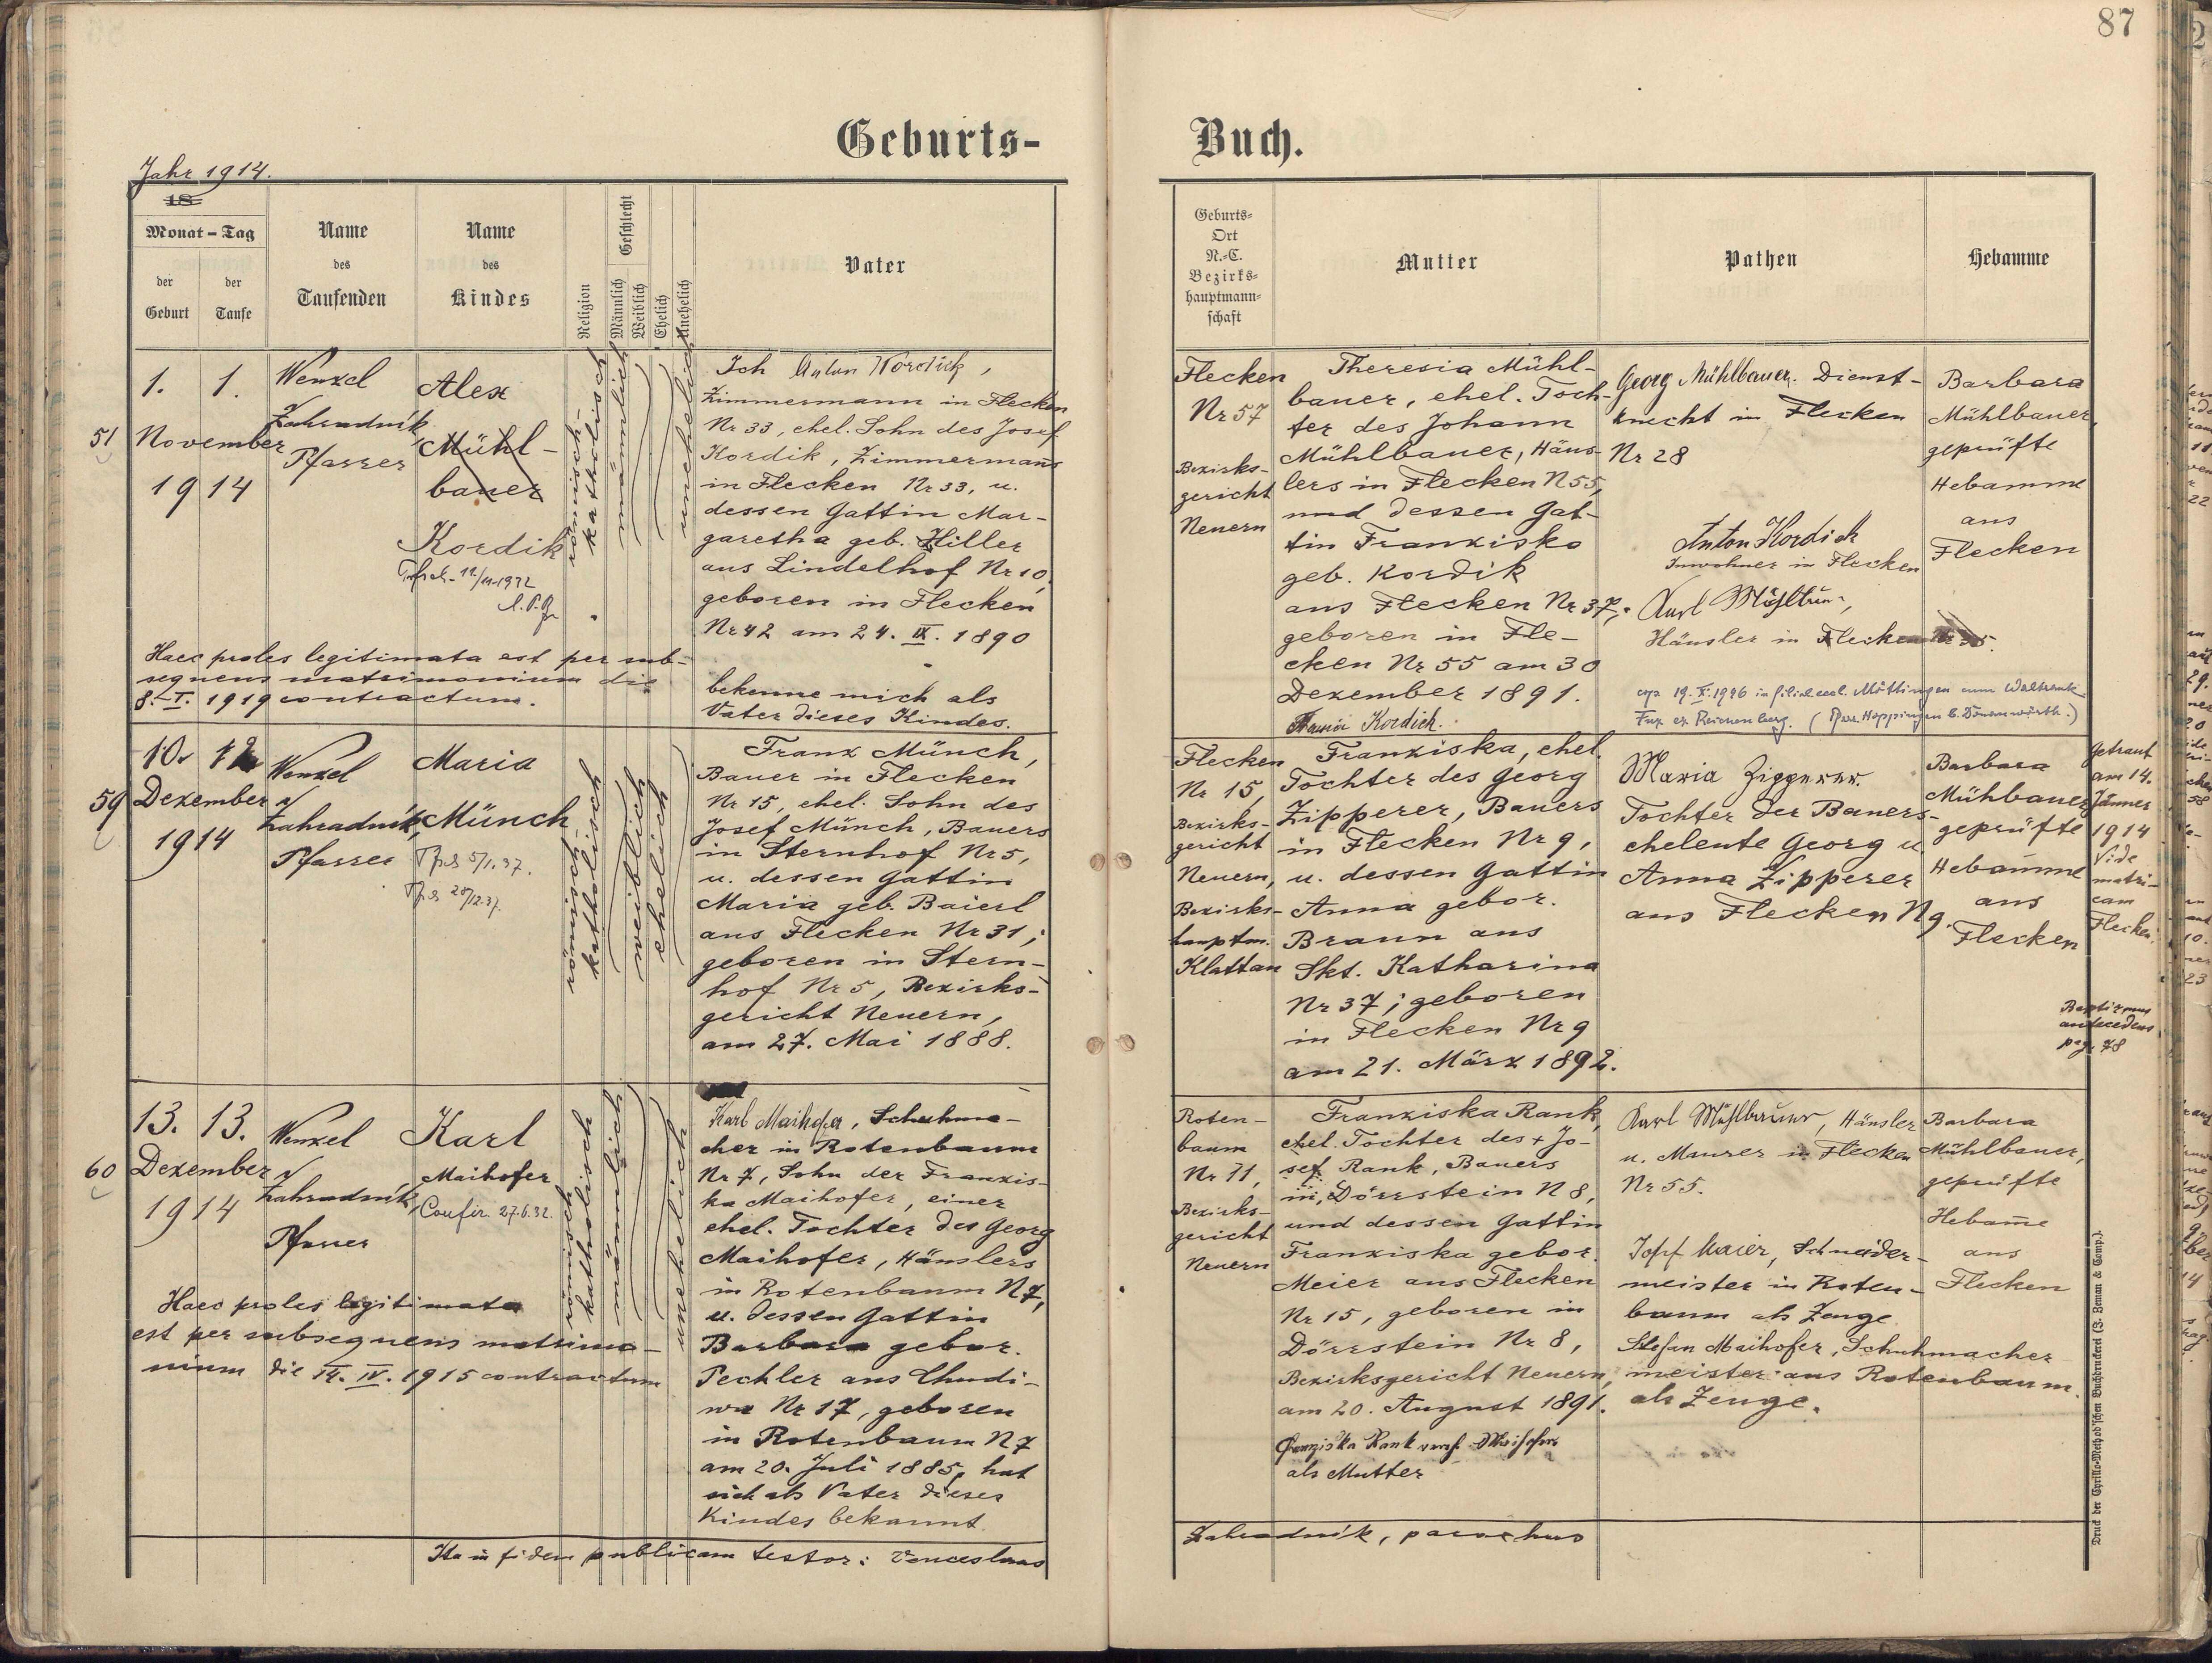 87
Geburts-
Buch.
Jahr 1914.
18
Monat-Tag
der
Geburt
der
Taufe
Name
des
Taufenden
Name
des
Kindes
Religion
Geschlecht
Männlich
Weiblich
Ehelich
Unehelich
Vater
Geburts-
Ort
N.-C.
Bezirks-
hauptmann-
schaft
Mutter
Pathen
Hebamme
51
1. 1.
November
1914
Wenzel
Zahradník
Pfarrer
Alex
Mühl-
bauer
Kordik
römisch-
katholisch
männlich
unehelich
Haec proles legitimata est per sub-
sequens matrimonium die
8.-I. 1919 contractum.
Ich Anton Kordick,
Zimmermann in Flecken
Nr 33, ehel. Sohn des Josef
Kordik, Zimmermanns
in Flecken Nr 33, u.
dessen Gattin Mar-
garetha geb. Hiller
aus Lindelhof Nr 10,
geboren in Flecken
Nr 42 am 24. IX. 1890
bekenne mich als
Vater dieses Kindes.
Flecken
Nr 57
Bezirks-
gericht
Neuern
Theresia Mühl-
bauer, ehel. Toch-
ter des Johann
Mühlbauer, Häus-
lers in Flecken N 55,
und dessen Gat-
tin Franziska
geb. Kordik
aus Flecken Nr 37,
geboren in Fle-
cken Nr 55 am 30
Dezember 1891.
Kordick.
Georg Mühlbauer. Dienst-
knecht in Flecken
Nr 28
Anton Kordick
Inwohner in Flecken
Karl
Häusler in Flecken
Barbara
Mühlbauer,
geprüfte
Hebamme
aus
Flecken
59
10.
Dezember
1914
Wenzel
Zahradník,
Pfarrer
Maria
Münch
5/1.37.
römisch-
katholisch
weiblich
ehelich
Franz Münch,
Bauer in Flecken
Nr 15, ehel. Sohn des
Josef Münch, Bauers
in Sternhof Nr 5,
u. dessen Gattin
Maria geb. Baierl
aus Flecken Nr 31;
geboren in Stern-
hof Nr 5, Bezirks-
gericht Neuern,
am 27. Mai 1888.
Flecken
Nr 15,
Bezirks-
gericht
Neuern,
Bezirks-
hauptm.
Klattau
Franziska, ehel.
Tochter des Georg
Zipperer, Bauers
in Flecken Nr 9,
u. dessen Gattin
Anna gebor.
Braun aus
Skt. Katharina
Nr 37; geboren
in Flecken Nr 9
am 21. März 1892.
Maria Zipperer.
Tochter der Bauers-
eheleute Georg u.
Anna Zipperer
aus Flecken N 9.
Barbara
Mühlbauer
geprüfte
Hebamme
aus
Flecken
Getraut
am 14.
Jänner
1914
Vide
matri-
cam
Flecken.
Baptizmus
antecedens
pag. 78
60
13. 13.
Dezember
1914
Wenzel
Zahradník,
Pfarrer
Karl
Maihofer
Confir. 27.6.32.
römisch
katholisch
männlich
unehelich
Haec proles legitimata
est per subsequens matrimo-
nium die 14. IV. 1915 contractum
Karl Maihofer, Schuhma-
cher in Rotenbaum
Nr 7, Sohn der Franzis-
ka Maihofer, einer
ehel. Tochter des Georg
Maihofer, Häuslers
in Rotenbaum N 7,
u. dessen Gattin
Barbara gebor.
Pechler aus Chudi-
wa Nr 17, geboren
in Rotenbaum N 7
am 20. Juli 1885, hat
sich als Vater dieses
Kindes bekannt
Roten-
baum
Nr 11,
Bezirks-
gericht
Neuern
Franziska Rank,
ehel. Tochter des + Jo-
sef Rank, Bauers
in Dörrstein N 8,
und dessen Gattin
Franziska gebor.
Meier aus Flecken
Nr 15, geboren in
Dörrstein Nr 8,
Bezirksgericht Neuern,
am 20. August 1891.
Franziska Rank verh. Maihofer
als Mutter
Karl Mühlbauer, Häusler
u. Maurer in Flecken
Nr 55.
Josef Maier, Schneider-
meister in Roten-
baum als Zeuge
Stefan Maihofer, Schuhmacher
meister aus Rotenbaum.
als Zeuge.
Barbara
Mühlbauer,
geprüfte
Hebame
aus
Flecken
Ita in fidem publicam testor: Venceslaus
Zahradník, parochus
Druck der Cyrillo-Method'schen Buchdruckerei (J. Zeman & Comp.).